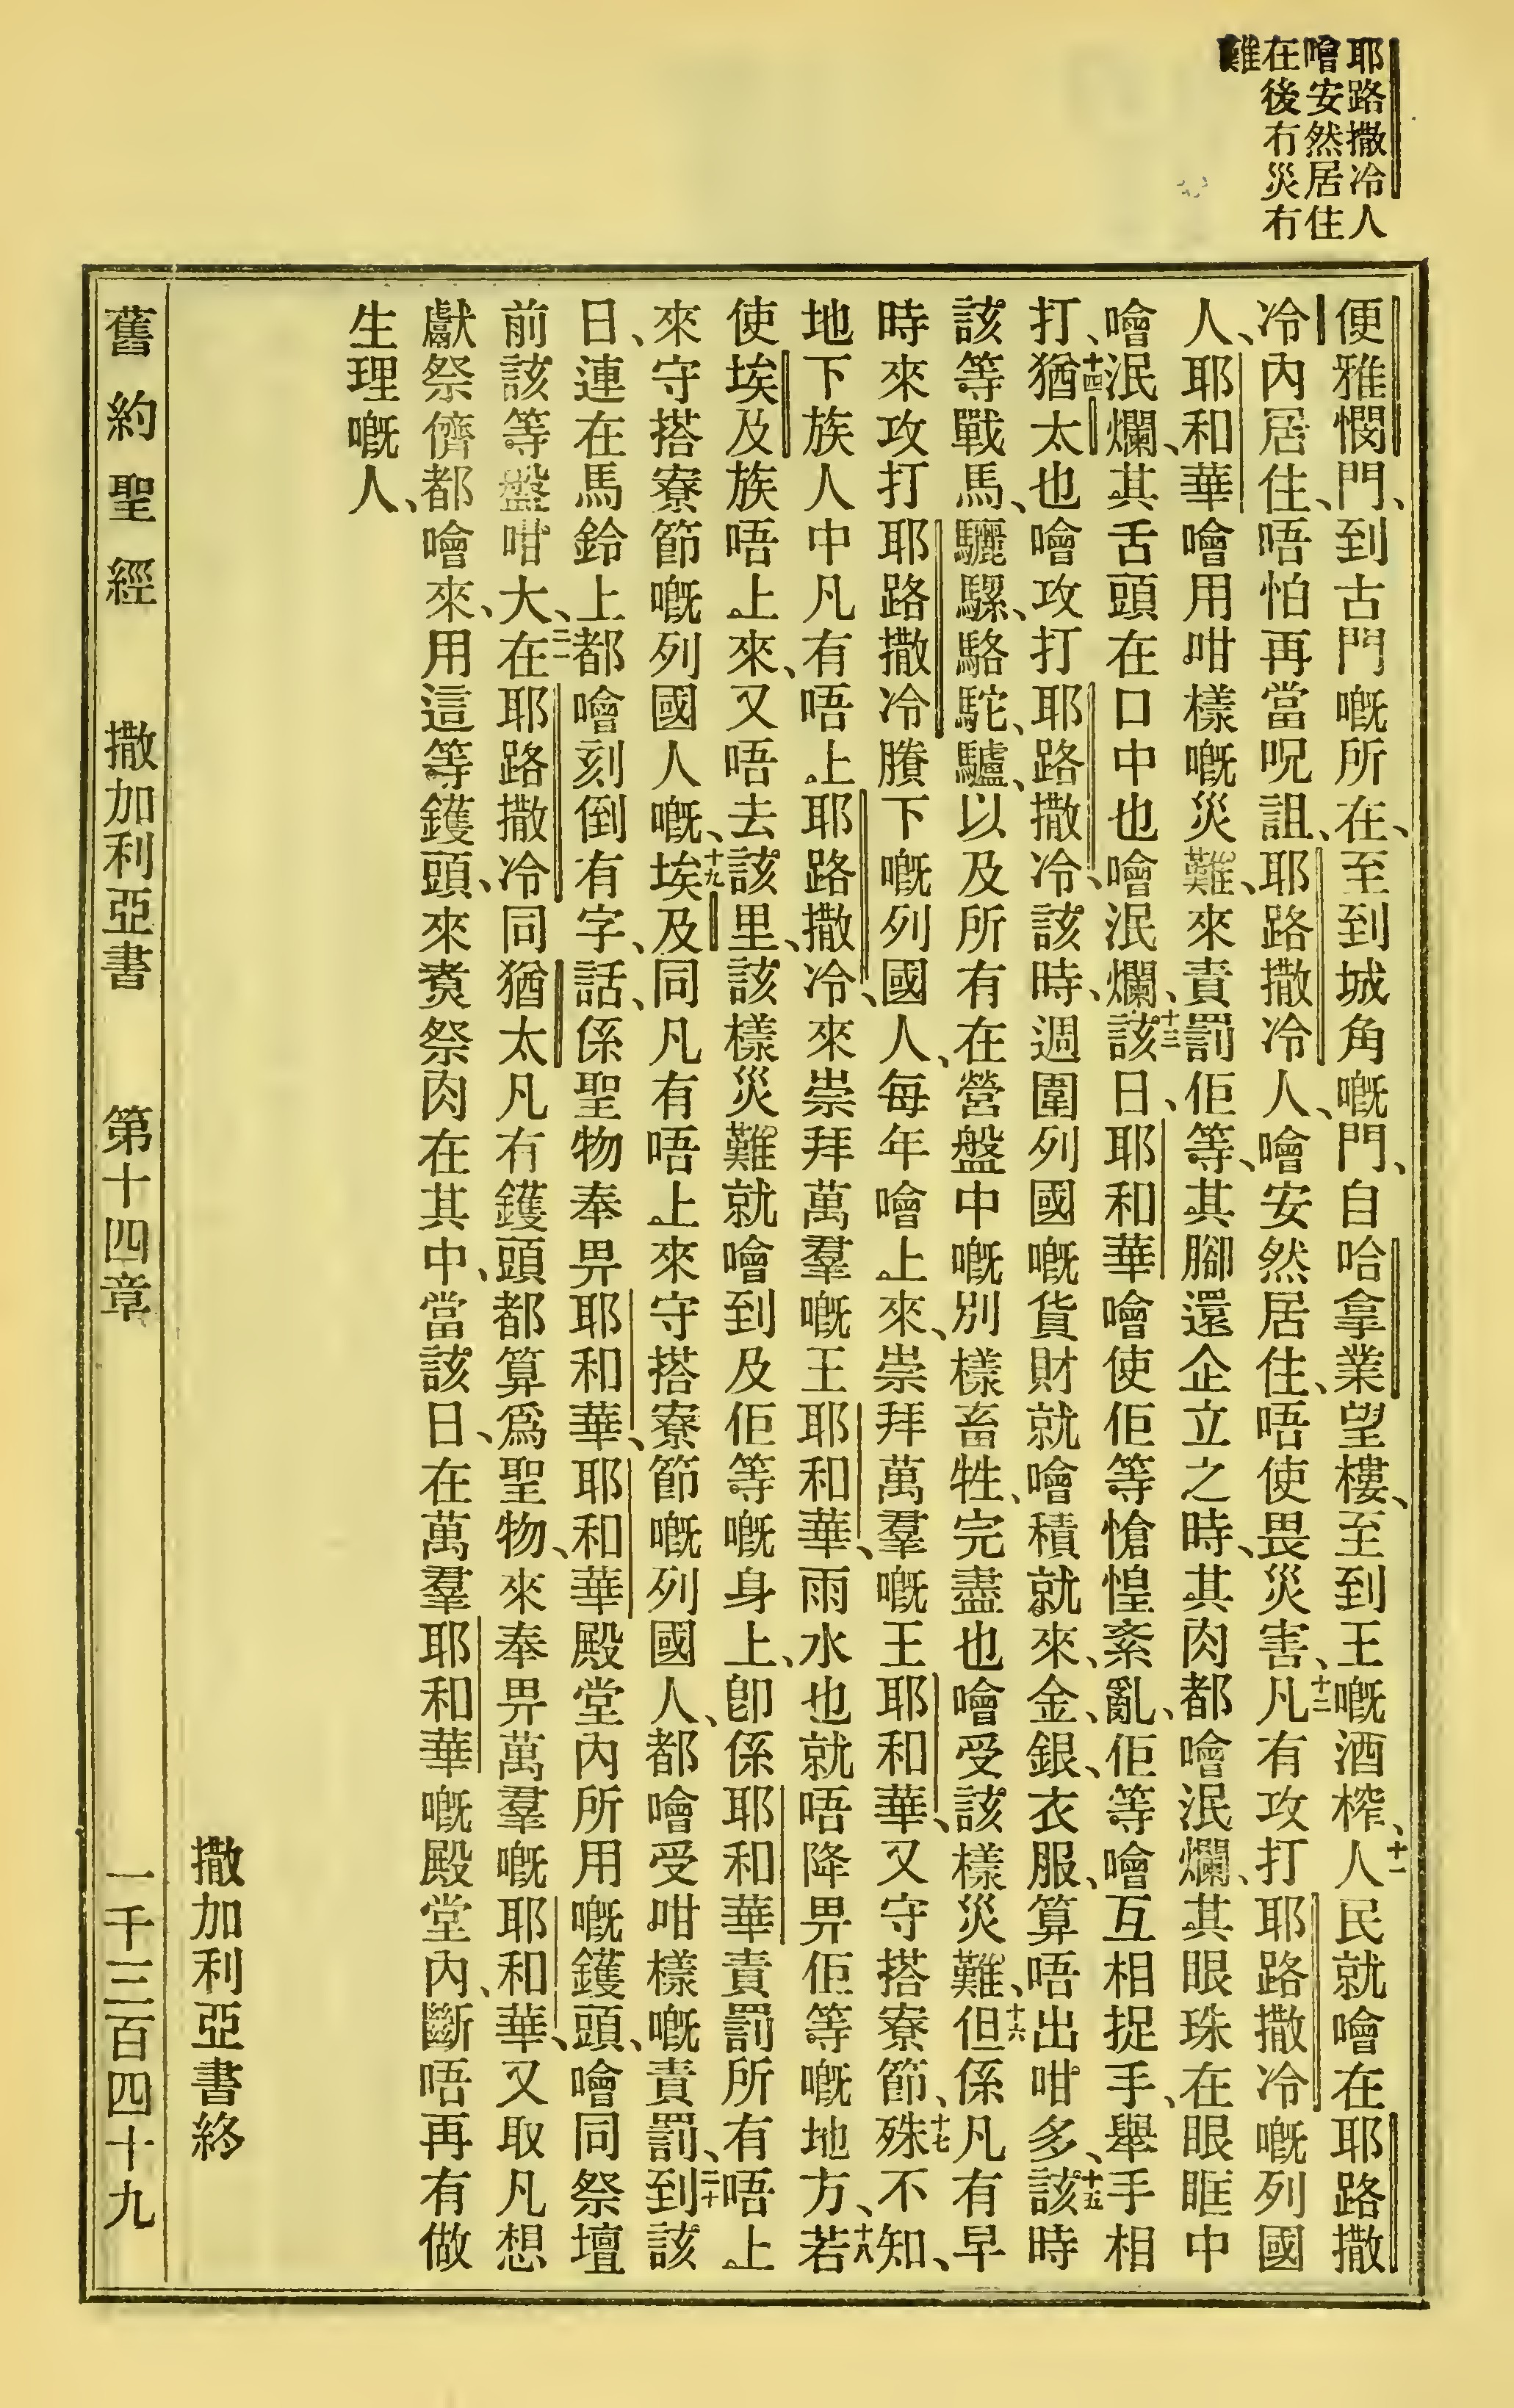 耶路撒冷人
噲安然居住
在後冇災冇
難
便雅憫門、到古門嘅所在、至到城角嘅門、自哈拿業望樓、至到王嘅酒榨、十一人民就噲在耶路撒
冷內居住、唔怕再當呪詛、耶路撒冷人、噲安然居住、唔使畏災害、十二凡有攻打耶路撒冷嘅列國
人、耶和華噲用咁樣嘅災難、來責罰佢等、其腳還企立之時、其肉都噲泯爛、其眼珠在眼眶中
噲泯爛、其舌頭在口中也噲泯爛、十三該日、耶和華噲使佢等愴惶紊亂、佢等噲互相捉手、舉手相
打、十四猶太也噲攻打耶路撒冷、該時、週圍列國嘅貨財就噲積就來、金、銀、衣服、算唔出咁多、十五該時
該等戰馬、驪騾、駱駝、驢、以及所有在營盤中嘅別樣畜牲、完盡也噲受該樣災難、十六但係凡有早
時來攻打耶路撒冷賸下嘅列國人、每年噲上來、崇拜萬羣嘅王耶和華、又守搭寮節、十七殊不知、
地下族人中凡有唔上耶路撒冷、來崇拜萬羣嘅王耶和華、雨水也就唔降畀佢等嘅地方、十八若
使埃及族唔上來、又唔去該里、該樣災難就噲到及佢等嘅身上、卽係耶和華責罰所有唔上
來守搭寮節嘅列國人嘅、十九埃及同凡有唔上來守搭寮節嘅列國人、都噲受咁樣嘅責罰、二十到該
日、連在馬鈴上都噲刻倒有字、話、係聖物奉畀耶和華、耶和華殿堂內所用嘅鑊頭、噲同祭壇
前該等盤咁大、二一在耶路撒冷同猶太凡有鑊頭都算爲聖物、來奉畀萬羣嘅耶和華、又取凡想
獻祭儕都噲來、用這等鑊頭、來煑祭肉在其中、當該日、在萬羣耶和華嘅殿堂內、斷唔再有做
生理嘅人、
撒加利亞書終
舊約聖經 撒加利亞書 第十四章 一千三百四十九